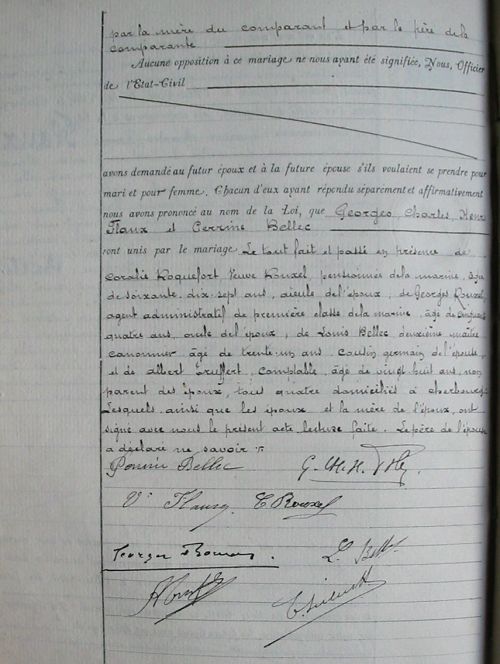 par la mère du comparant et par le père de la
comparante
Aucune opposition à ce mariage ne nous ayant été signifiée, Nous, Officier
de l'Etat-Civil
avons demandé au futur époux et à la future épouse s'ils voulaient se prendre pour
mari et pour femme. Chacun d'eux ayant répondu séparement et affirmativement
nous avons prononcé au nom de la Loi, que Georges Charles Henri
Flaux et Perrine Bellec
sont unis par le mariage. Le tout fait et passé en présence de
Coralie Roquefort Veuve Rouxel, pensionnée de la marine, âgée
de soixante-dix-sept ans, aïeule de l'époux, de Georges Rouxel
agent administratif de première classe de la marine, âgé de cinquante
quatre ans, oncle de l'époux, de Louis Bellec, deuxième maître
canonnier, âgé de trente-un ans, cousin germain de l'épouse
et de Albert Truffert, comptable, âgé de vingt huit ans, non
parent des époux, tous quatre domiciliés à Cherbourg
Lesquels, ainsi que les époux et la mère de l'époux, ont
signé avec nous le présent acte lecture faite. Le père de l'épouse
a déclaré ne savoir
Perrine Bellec
C. Rouxel
L. Bellec